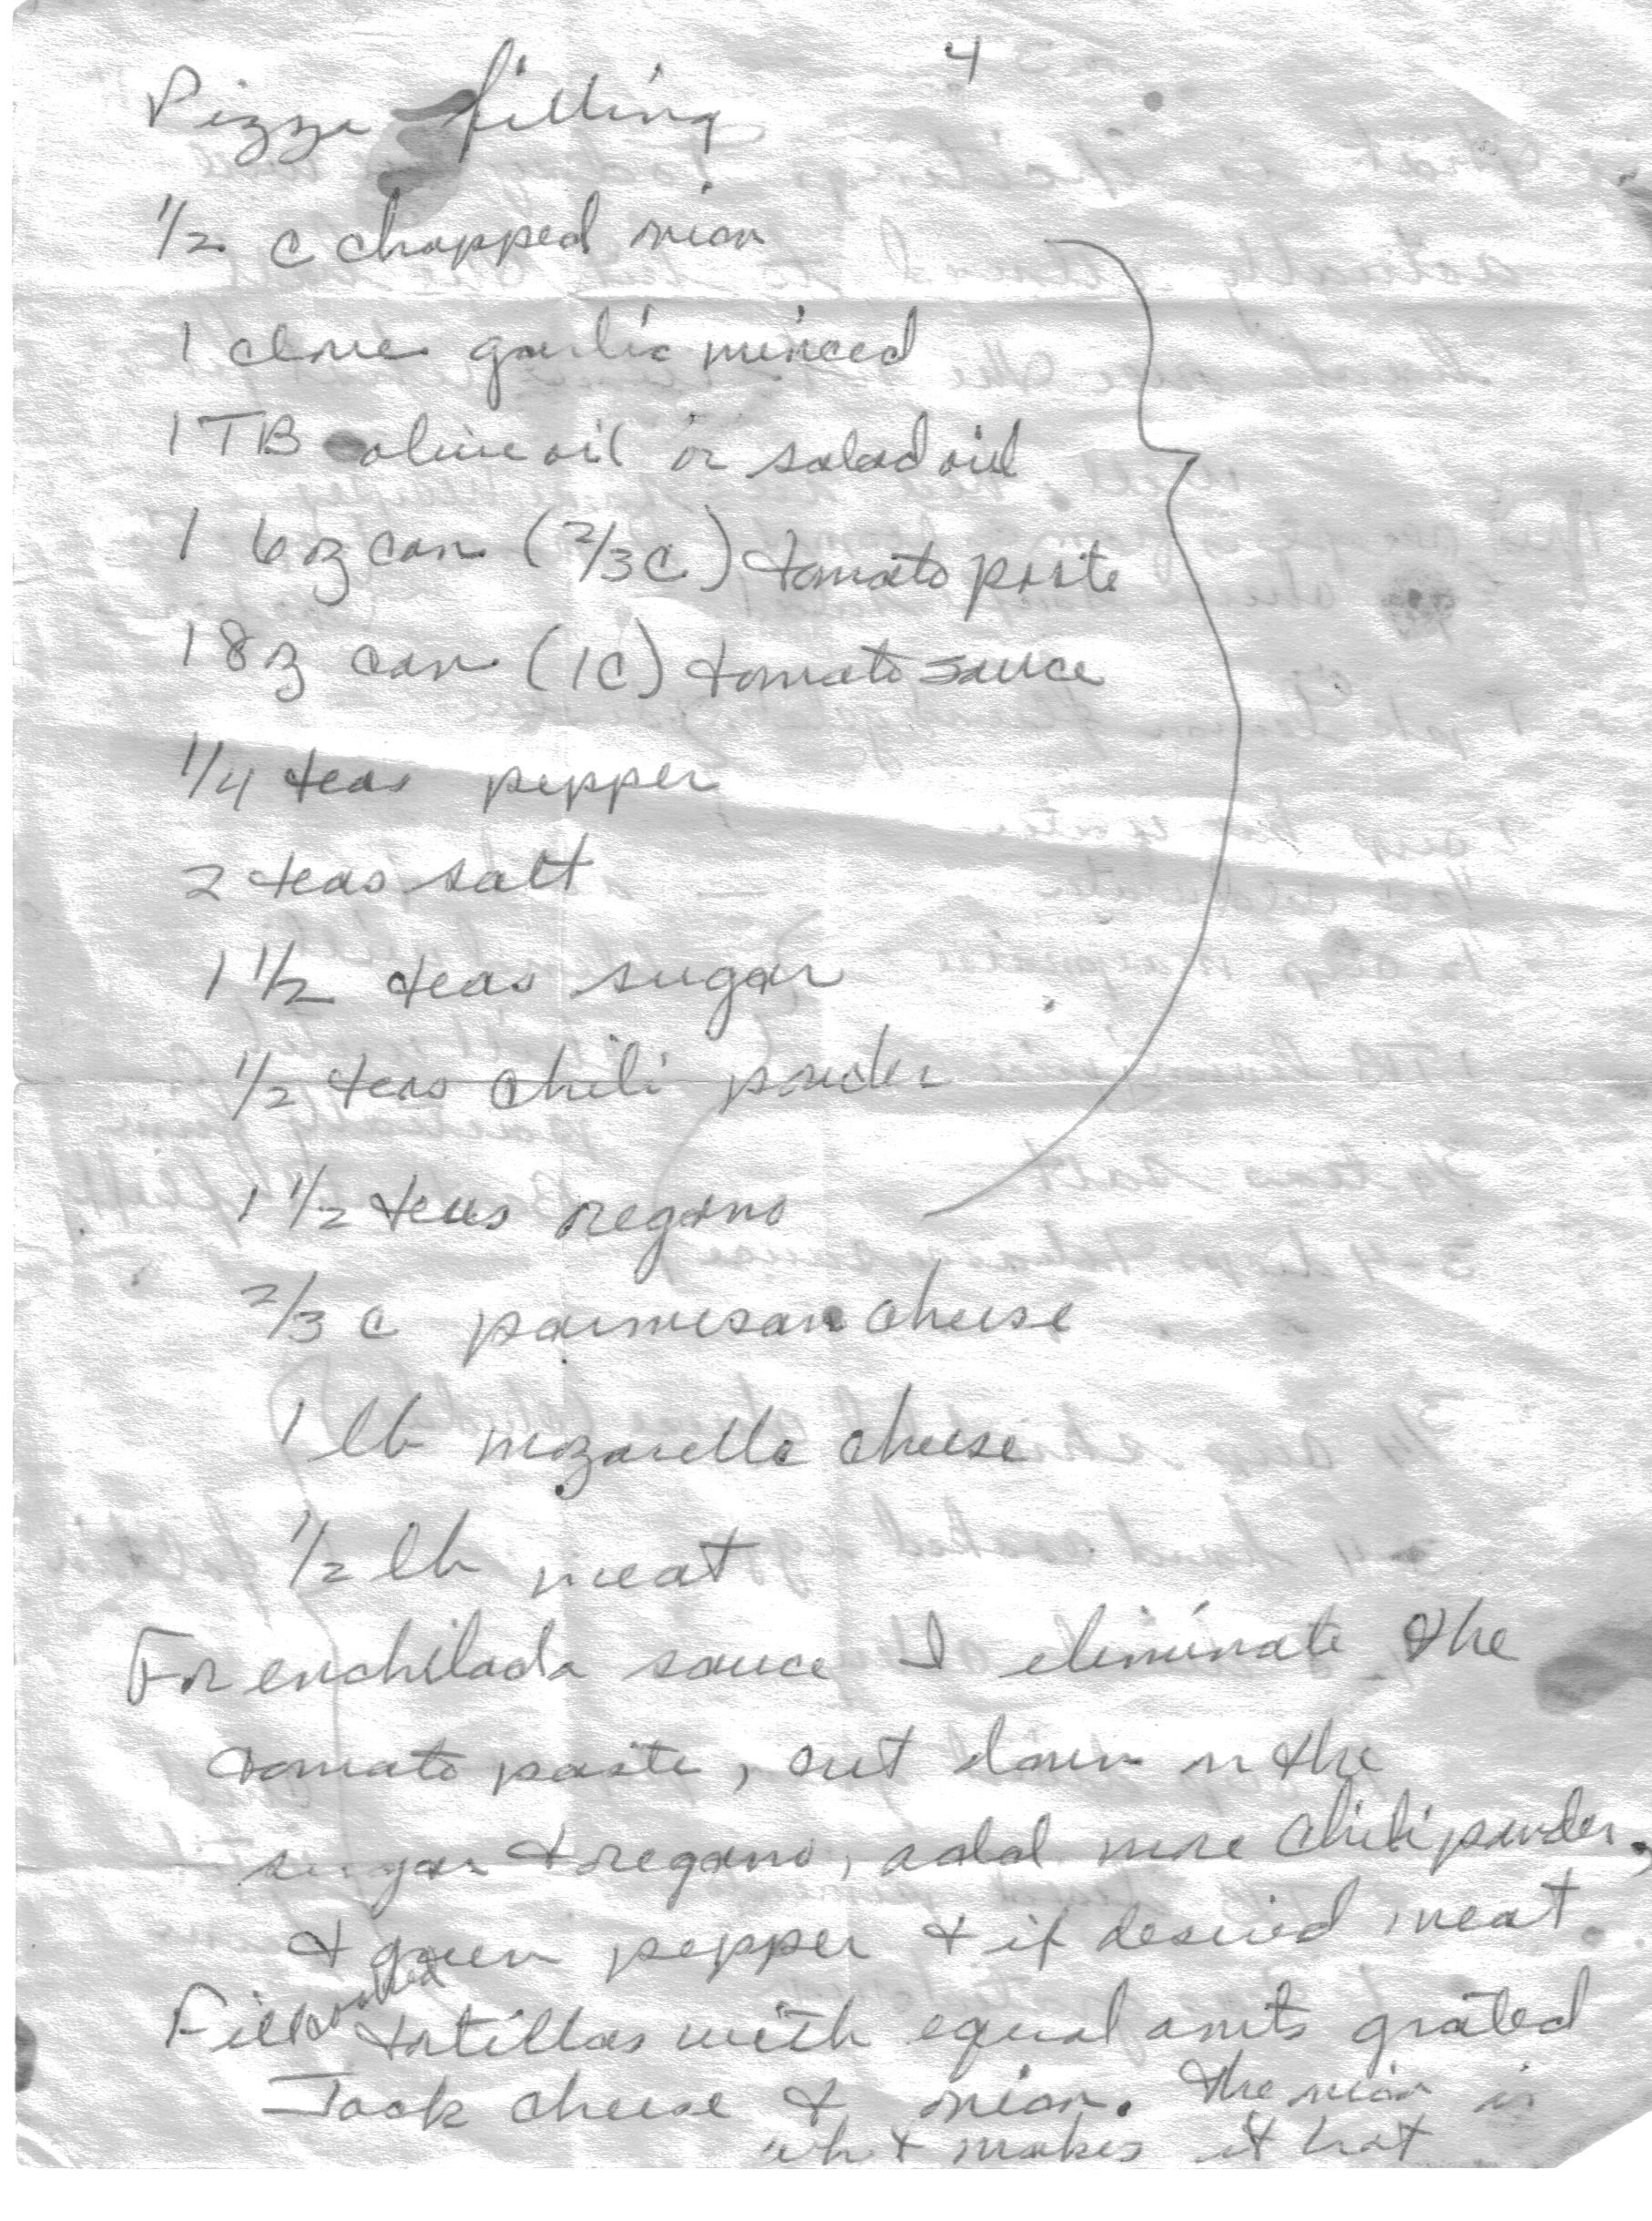 4
Pizza filling
1/2 c chopped onion
1 clove garlic minced
1 TB olive oil or salad oil
1 6 oz can (2/3 c) tomato paste
1 8 oz can (1 C) tomato sauce
1/4 teas pepper
2 teas salt
1 1/2 teas sugar
1/2 teas chili powder
1 1/2 teas oregano
2/3 c parmesan cheese
1 lb mozarella cheese
1/2 lb meat
For enchilada sauce I eliminate the
tomato paste, cut down on the
sugar & oregano, add more chili powder,
& green pepper & if desired meat.
Fill rolled tortillas with equal amts grated
Jack cheese & onion. The onion is
what makes it hot